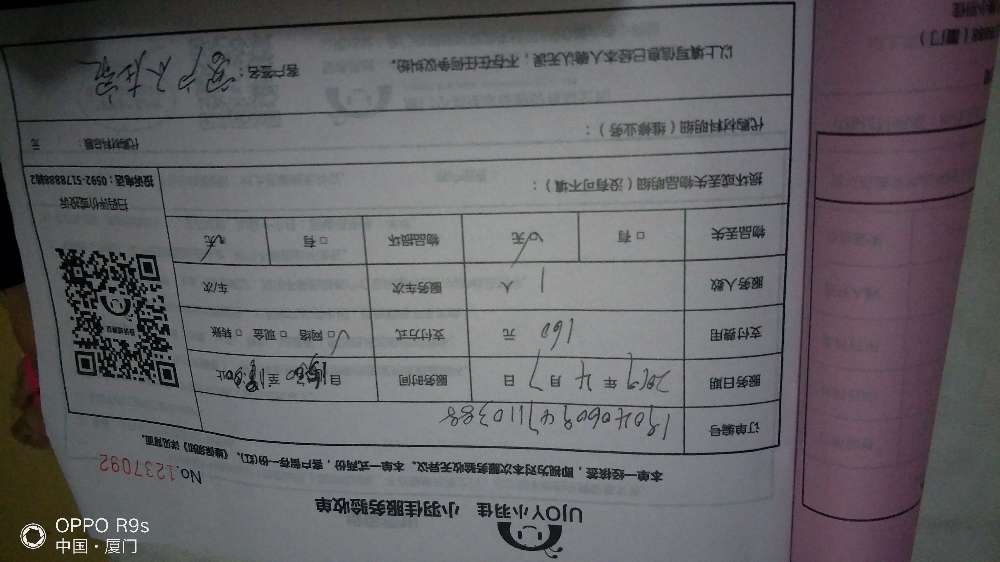 UJOY小羽佳 小羽佳服务验收单
本单一经接签，即视为对本次服务验收无异议。本单一式两份，客户留存一份(红)，《维保须知》详见背面。
No.1237092
订单编号
服务日期 2019年4月7日 服务时间 自 至 止
支付费用 160 元 支付方式 ☑网络 □现金 □转账
服务人数 1 人 服务车次 车/次
物品丢失 □有 ☑无 物品损坏 □有 ☑无
扫码评价或投诉
投诉电话：0592-5178888转2
损坏或丢失物品明细（没有可不填）：
代购材料明细（维修业务）： 代购材料总额： 元
以上填写信息已经本人确认无误，不存在任何争议纠纷。 客户签名：客户不在家
OPPO R9s
中国·厦门